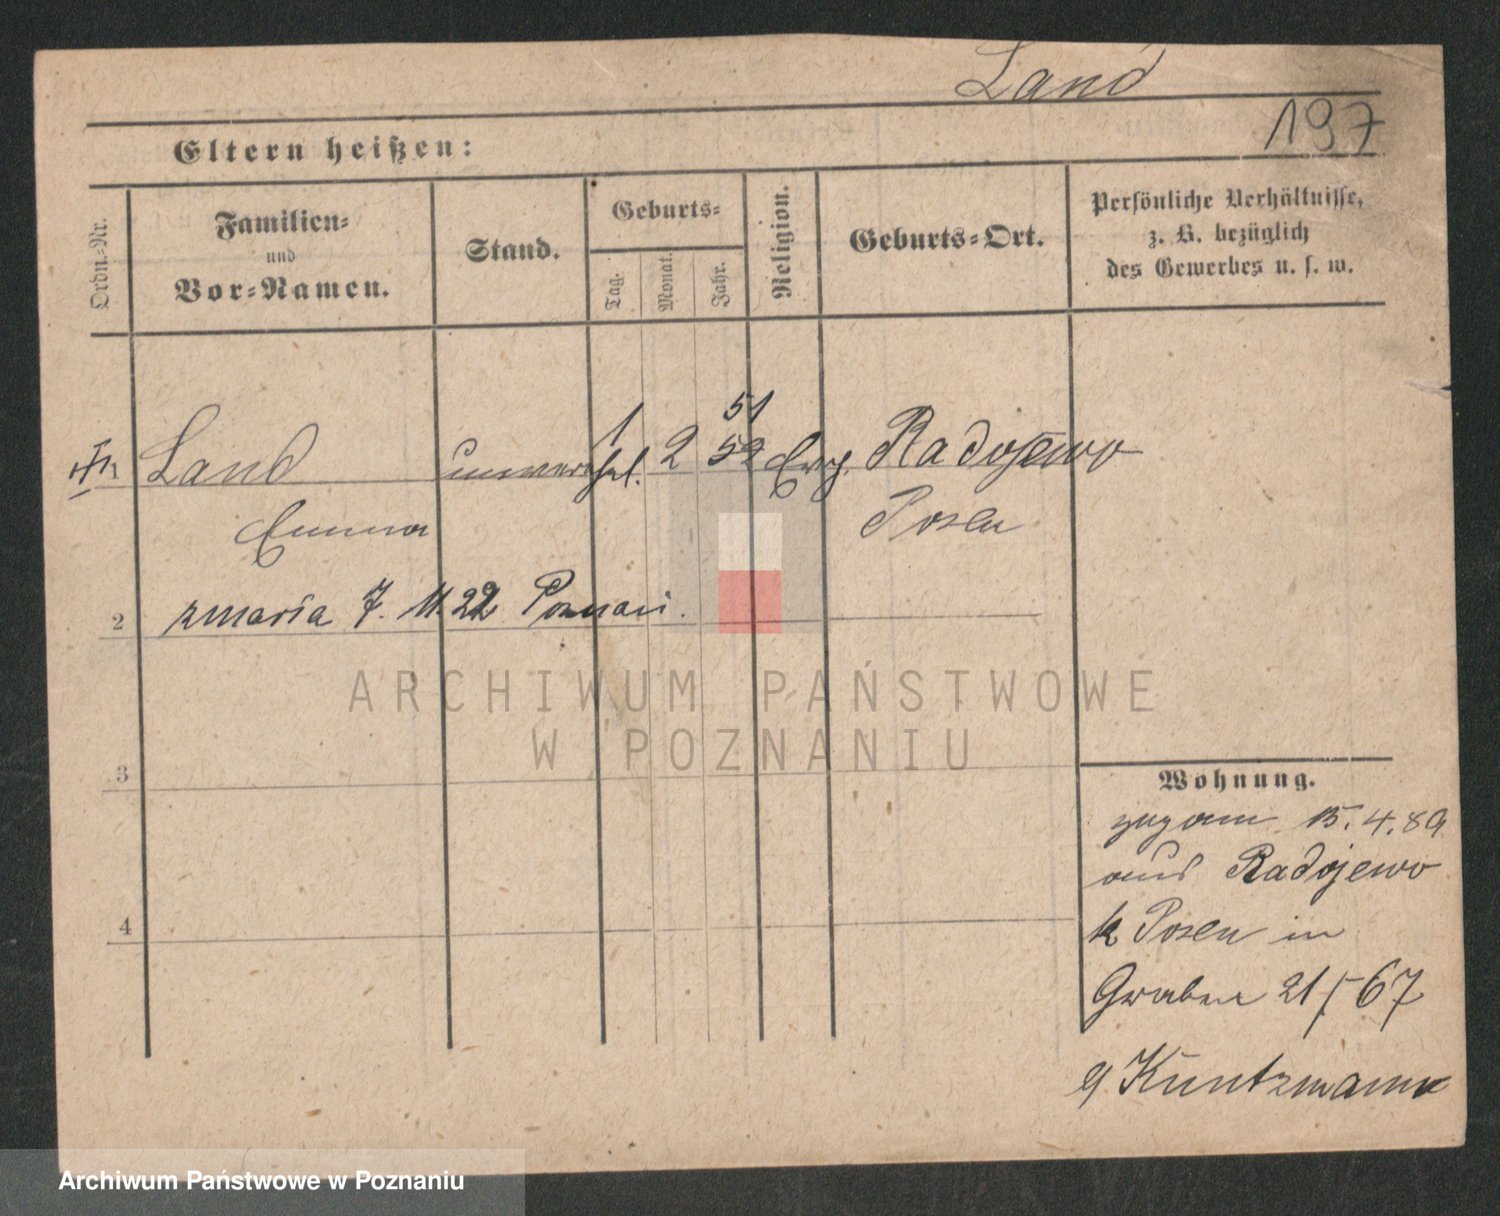 Land
197
Eltern heißen:
Ordn.-Nr.
Familien-
und
Vor-Namen.
Stand.
Geburts-
Tag.
Monat.
Jahr.
Religion.
Geburts-Ort.
Persönliche Verhältnisse,
z. B. bezüglich
des Gewerbes u. s. w.
51
1 Land unverehel. 1 2 52 Evg. Radojewo
Emma Posen
2 zmarła 7. 11. 22 Poznań.
3
4
ARCHIWUM PAŃSTWOWE
W POZNANIU
Wohnung.
zugam 15.4.89
aus Radojewo
k Posen in
Graben 21/67
Kuntzmann
Archiwum Państwowe w Poznaniu